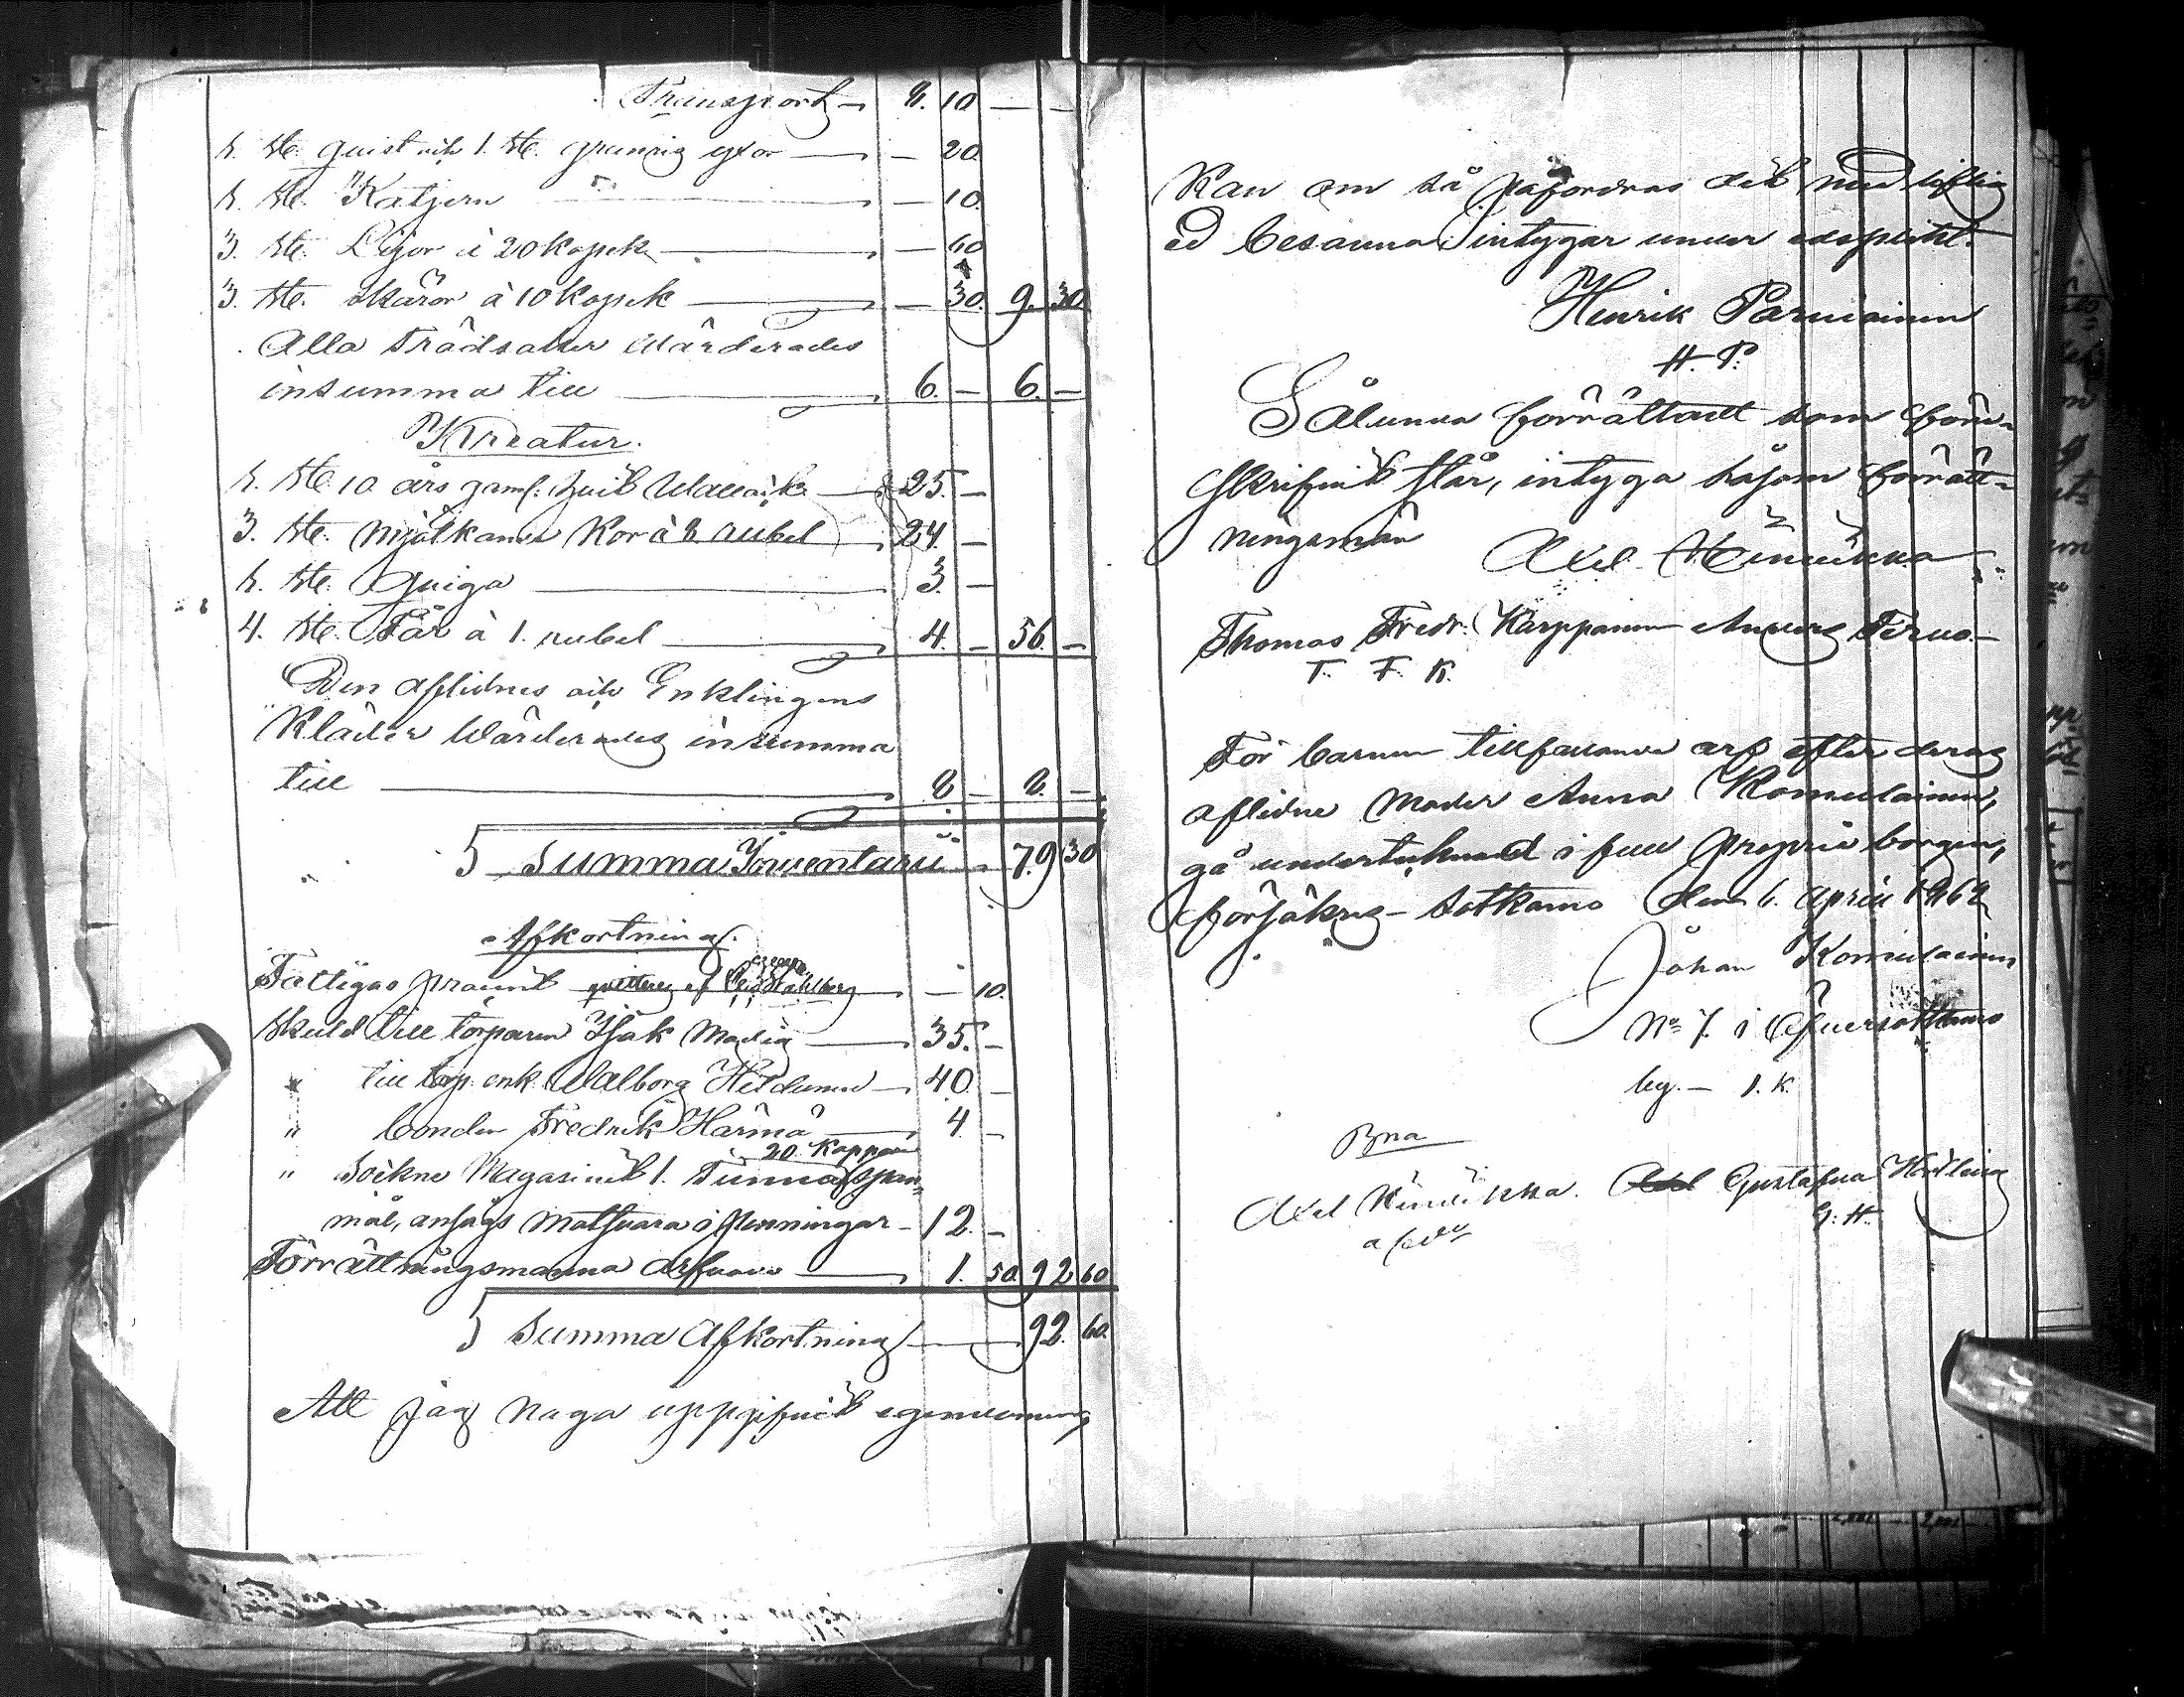 Transport — 8. 10 — —
1. st. quist och 1. st. granrig yxor — — 20.
1. st. Katjern — — 10.
3. st. Lijor à 20 kopek — — 60
3. st. skäror à 10 kopek — — 30. 9. 30.
Alla trädsaker wärderades
insumma till — 6. — 6. —
Kreatur.
1. st. 10 års gam. hvit Wallack — 25. —
3. st. mjölkande Kor à 8 rubel 24. —
1. st. Qviga — 3. —
4. st. Får à 1. rubel — 4. — 56. —
Den aflidnes och Enklingens
Kläder Wärderades insumma
till — 8 — 8. —
Summa Inventarii — 79 30
Afkortning.
Fattigas procent — 10.
Skuld till torparen Isak — 35. —
" till torp. enk. Walborg — 40. —
" bonden Fredrik Härmä — 4. —
20 Kappar
" Sockne Magasinet 1. Tunna span-
mål, ansågs motsvara i penningar — 12. —
Förrättningsmanna arfvode — 1. 50. 92 60
Summa Afkortning — 92. 60.
Att jag noga uppgifvit egendomen
Kan om så påfordras det med liflig
ed besanna, intygar under edsplikt.
Henrik Parviainen
H. P.
Sålunda förrättadt som före-
skrifvit står, intyga såsom förrätt-
ningsmän Axel
Thomas Fredr. Karppanen
T. F. K.
För barnen tillfallande arf efter deras
aflidne Moder Anna Komulainen,
gå undertecknad i full proprie borgen,
försäkras — Sotkamo den 6. April 1868
Johan Komulainen
No 7. i Öfversotkamo
by. — J. K.
Axel Gustafva
G. H.